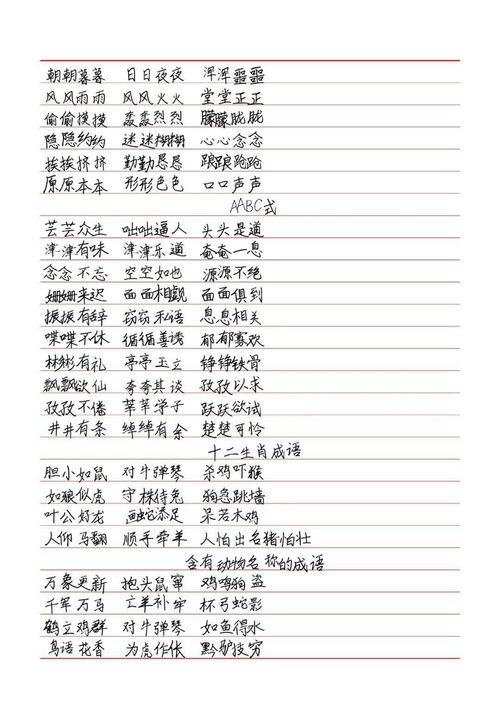 朝朝暮暮 日日夜夜 浑浑噩噩
风风雨雨 风风火火 堂堂正正
偷偷摸摸 轰轰烈烈 朦朦胧胧
隐隐约约 迷迷糊糊 心心念念
挨挨挤挤 勤勤恳恳 踉踉跄跄
原原本本 形形色色 口口声声
AABC式
芸芸众生 咄咄逼人 头头是道
津津有味 津津乐道 奄奄一息
念念不忘 空空如也 源源不绝
姗姗来迟 面面相觑 面面俱到
振振有辞 窃窃私语 息息相关
喋喋不休 循循善诱 郁郁寡欢
彬彬有礼 亭亭玉立 铮铮铁骨
飘飘欲仙 夸夸其谈 孜孜以求
孜孜不倦 莘莘学子 跃跃欲试
井井有条 绰绰有余 楚楚可怜
十二生肖成语
胆小如鼠 对牛弹琴 杀鸡吓猴
如狼似虎 守株待兔 狗急跳墙
叶公好龙 画蛇添足 呆若木鸡
人仰马翻 顺手牵羊 人怕出名猪怕壮
含有动物名称的成语
万象更新 抱头鼠窜 鸡鸣狗盗
千军万马 亡羊补牢 杯弓蛇影
鹤立鸡群 对牛弹琴 如鱼得水
鸟语花香 为虎作伥 黔驴技穷